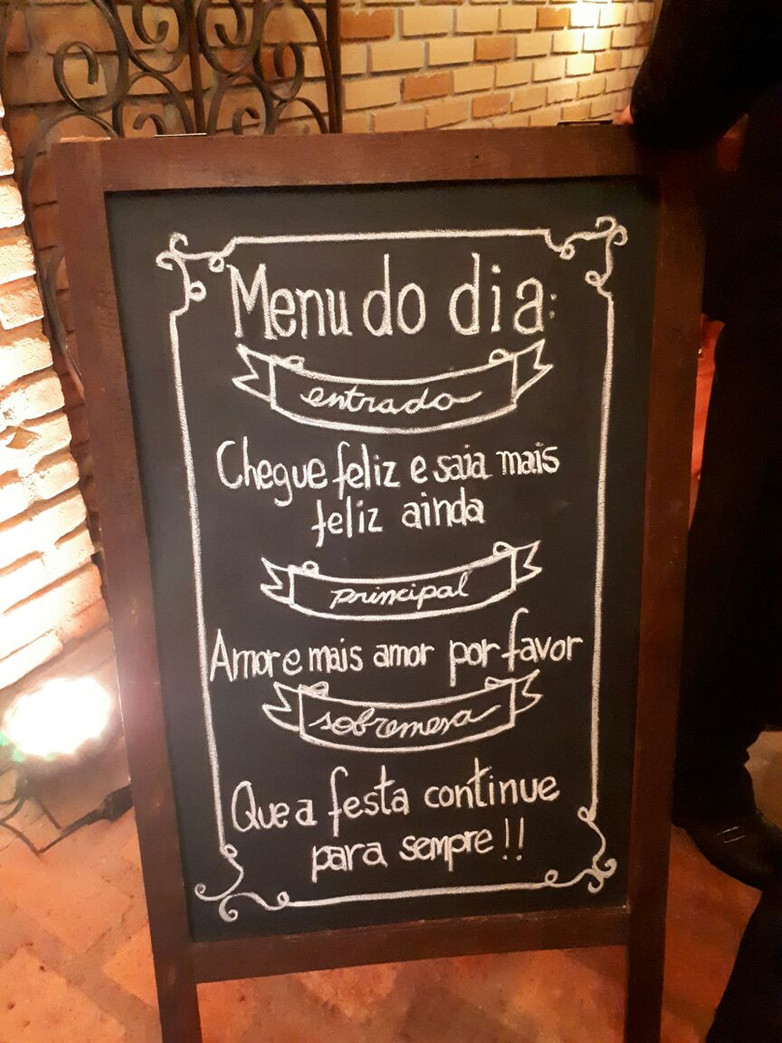 Menu do dia:
entrado
Chegue feliz e saia mais
feliz ainda
principal
Amor e mais amor por favor
sobremesa
Que a festa continue
para sempre!!